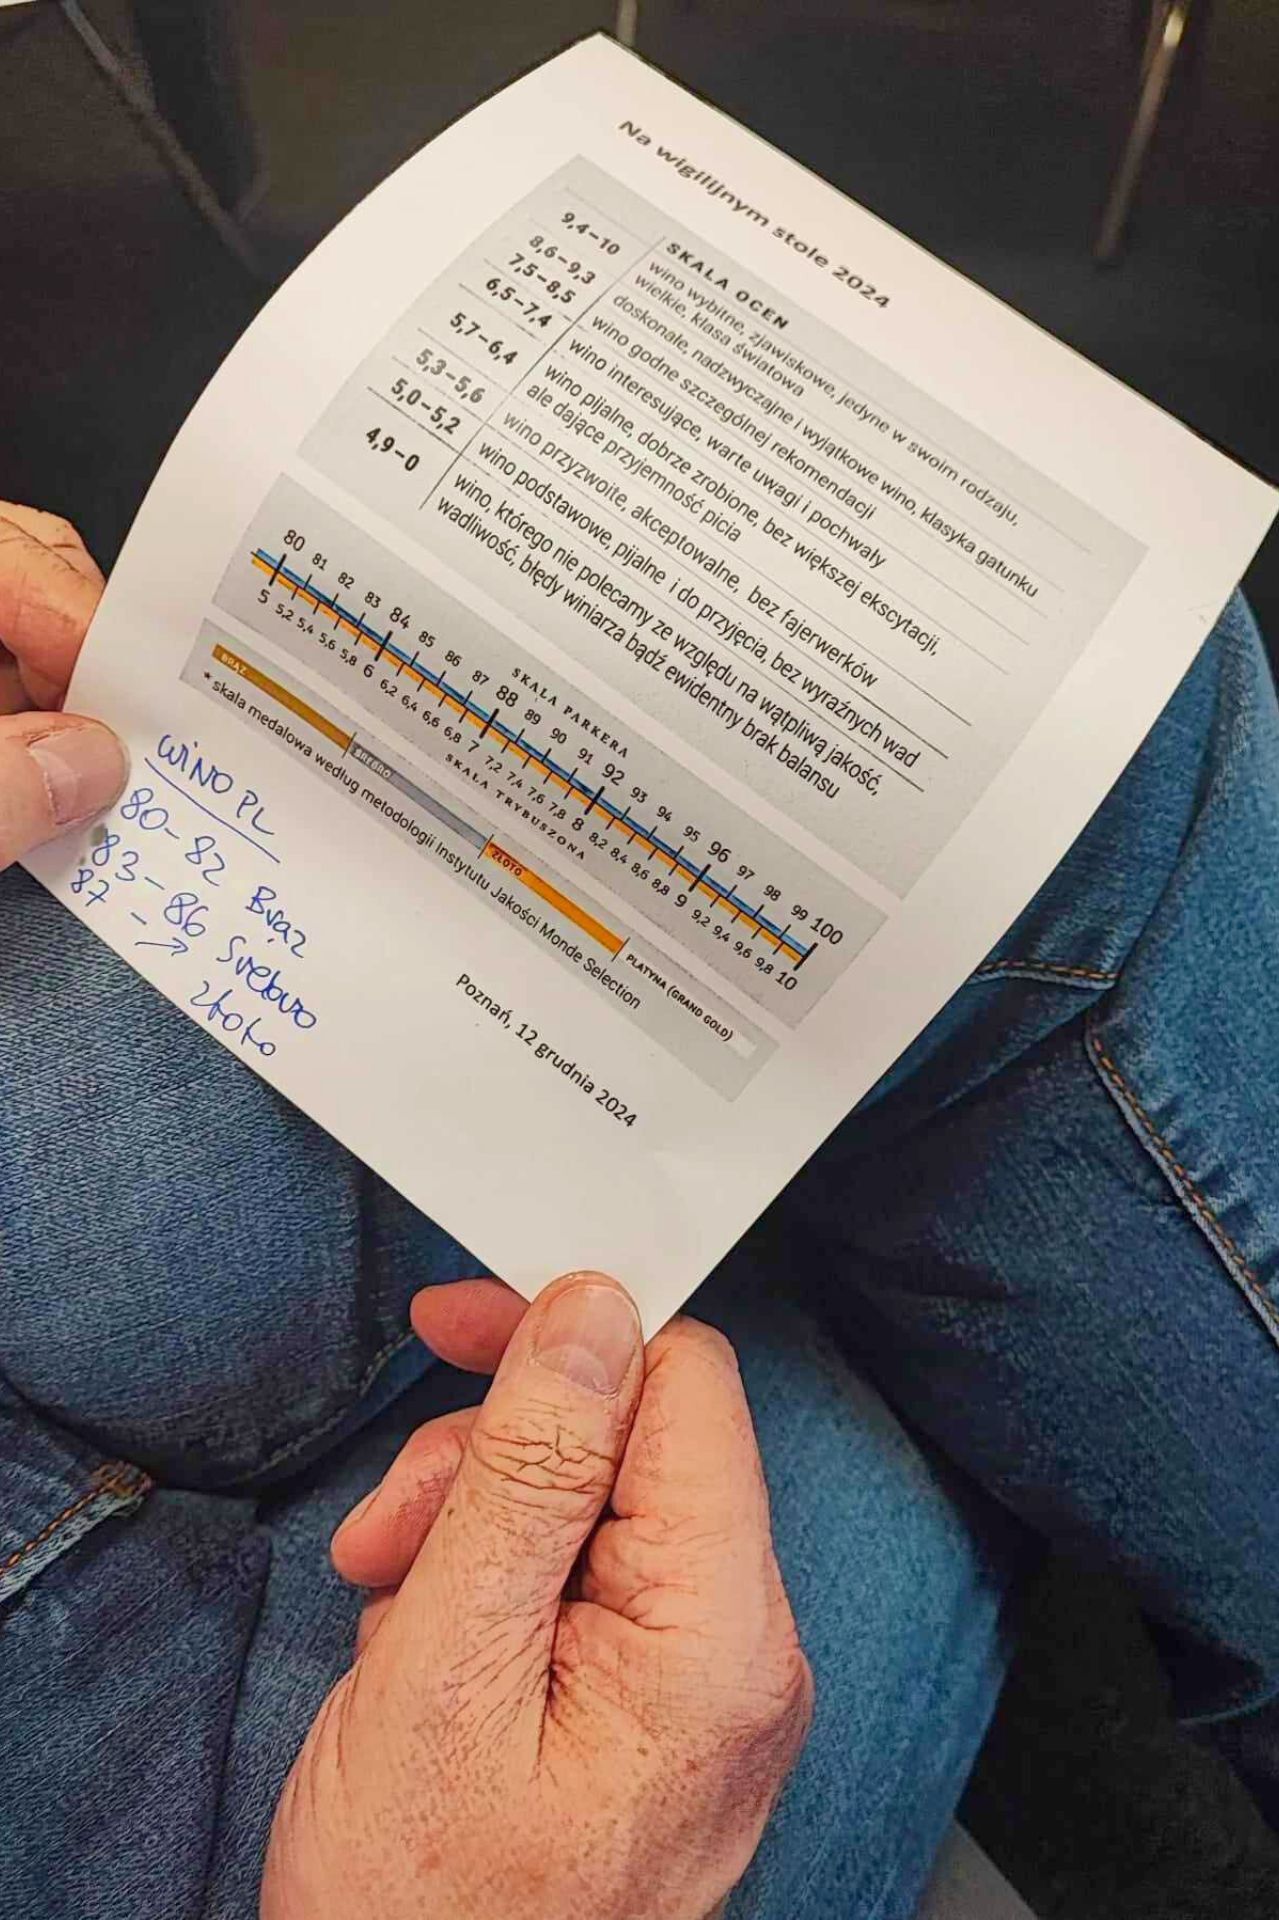 Na wigilijnym stole 2024
SKALA OCEN
9,4–10 wino wybitne, zjawiskowe, jedyne w swoim rodzaju,
wielkie, klasa światowa
8,6–9,3 doskonałe, nadzwyczajne i wyjątkowe wino, klasyka gatunku
7,5–8,5 wino godne szczególnej rekomendacji
6,5–7,4 wino interesujące, warte uwagi i pochwały
5,7–6,4 wino pijalne, dobrze zrobione, bez większej ekscytacji,
ale dające przyjemność picia
5,3–5,6 wino przyzwoite, akceptowalne, bez fajerwerków
5,0–5,2 wino podstawowe, pijalne i do przyjęcia, bez wyraźnych wad
4,9–0 wino, którego nie polecamy ze względu na wątpliwą jakość,
wadliwość, błędy winiarza bądź ewidentny brak balansu
SKALA PARKERA
80 81 82 83 84 85 86 87 88 89 90 91 92 93 94 95 96 97 98 99 100
5 5,2 5,4 5,6 5,8 6 6,2 6,4 6,6 6,8 7 7,2 7,4 7,6 7,8 8 8,2 8,4 8,6 8,8 9 9,2 9,4 9,6 9,8 10
SKALA TRYBUSZONA
BRĄZ SREBRO ZŁOTO PLATYNA (GRAND GOLD)
* skala medalowa według metodologii Instytutu Jakości Monde Selection
Poznań, 12 grudnia 2024
WINO PL
80-82 Brąz
83-86 Srebro
87 - → złoto